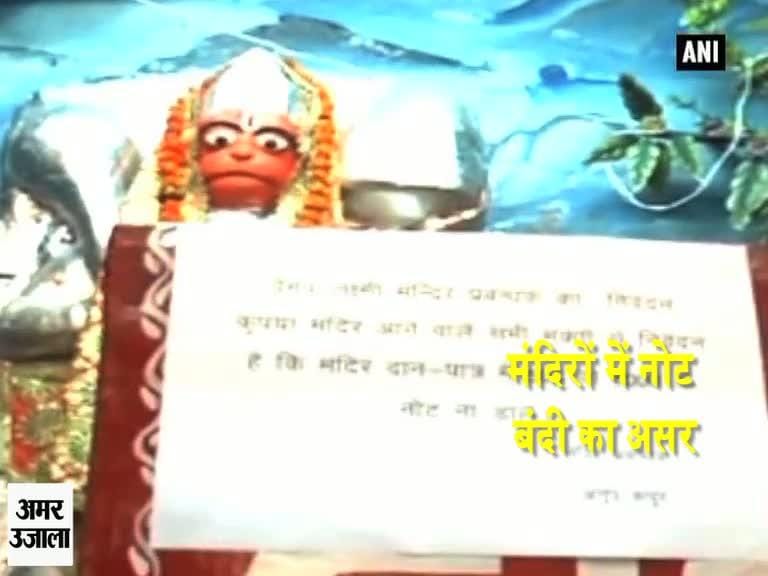 ANI
लक्ष्मी मन्दिर प्रबन्धक का निवेदन
कृपया मंदिर आने वाले सभी भक्तों से निवेदन
है कि मंदिर दान-पात्र
नोट ना
मंदिरों में नोट
बंदी का असर
अमर
उजाला